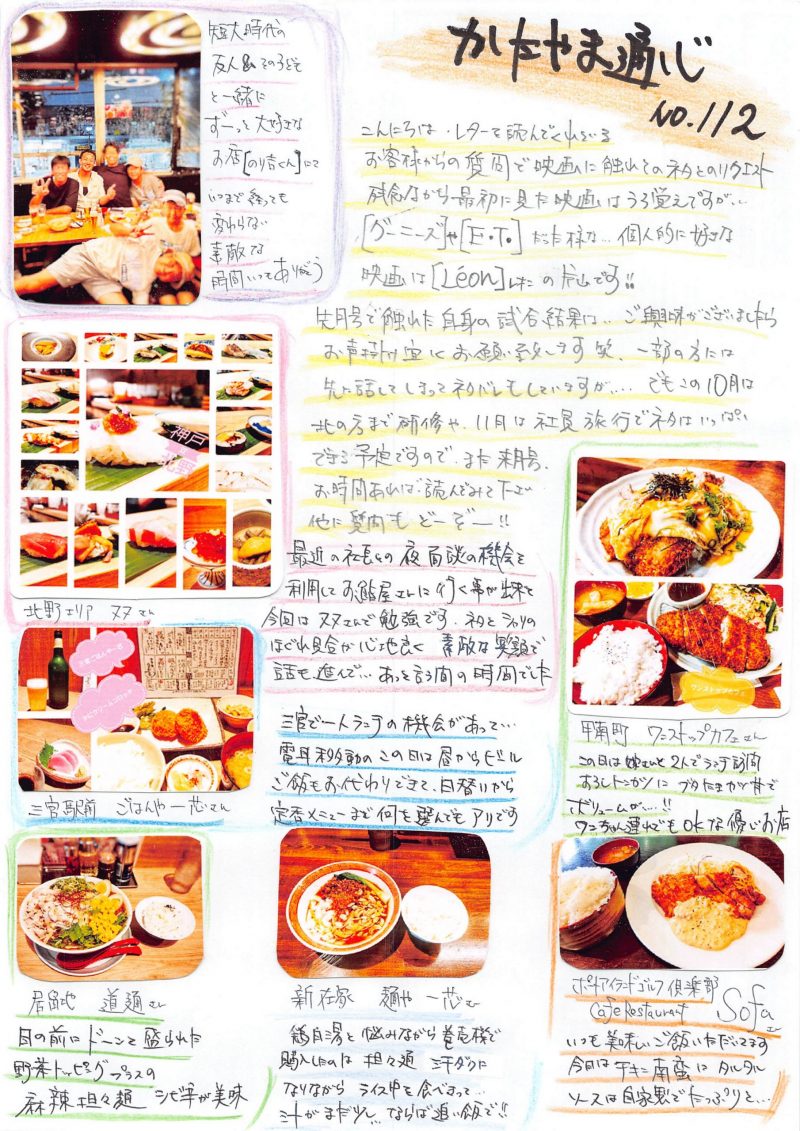 かたやま通信
NO.112
短大時代の
友人&その子ども
と一緒に
ずーっと大好きな
お店[のり吉くん]にて
いつまで経っても
変わらない
素敵な
時間いつもありがとう
こんにちは、レターを読んでくれている
お客様からの質問で映画に触れてのネタとのリクエスト
残念ながら最初に見た映画はうろ覚えですが…
[グーニーズ]や[E.T.]だった様な…個人的に好きな
映画は[Léon]の片山です!!
先月号で触れた自身の試合結果は…ご興味がございましたら
お声掛け宜しくお願い致します笑、一部の方には
先に話してしまってネタバレもしていますが…でもこの10月は
北の方まで研修や、11月は社員旅行でネタはいっぱい
できる予定ですので、また来月号、
お時間あれば、読んでみて下さい
他に質問もどーぞー!!
神戸
北野
北野エリア ヌヌさん
最近の社長との夜面談の機会を
利用してお鮨屋さんに行く事が出来て
今回はヌヌさんで勉強です、ネタとシャリの
ほぐれ具合が心地良く 素敵な笑顔で
話も進んで…あっと言う間の時間でした
三宮ごはんや一芯
かにクリームコロッケ
三宮駅前 ごはんや一芯さん
三宮で一人ランチの機会があって…
電車移動のこの日は昼からビール
ご飯もお代わりできて、日替りから
定番メニューまで何を選んでもアリです
ワンストップカフェ
甲南町 ワンストップカフェさん
この日は娘さんと2人でランチ訪問
おろしトンカツに ブタたまかつ丼で
ボリュームが…!!
ワンちゃん連れでもOKな優しいお店
居留地 道麺さん
目の前にドーンと盛られた
野菜トッピングプラスの
麻辣担々麺 シビ辛が美味
新在家 麺や一芯さん
鶏白湯と悩みながら券売機で
購入したのは担々麺 汗ダクに
なりながら ライス中を食べまって…
汁がまだ少し…ならば追い飯で!!
ポートアイランドゴルフ倶楽部
Cafe Restaurant Sofaさん
いつも美味しいご飯いただいてます
今日はチキン南蛮は タルタル
ソースは自家製でたっぷりと…